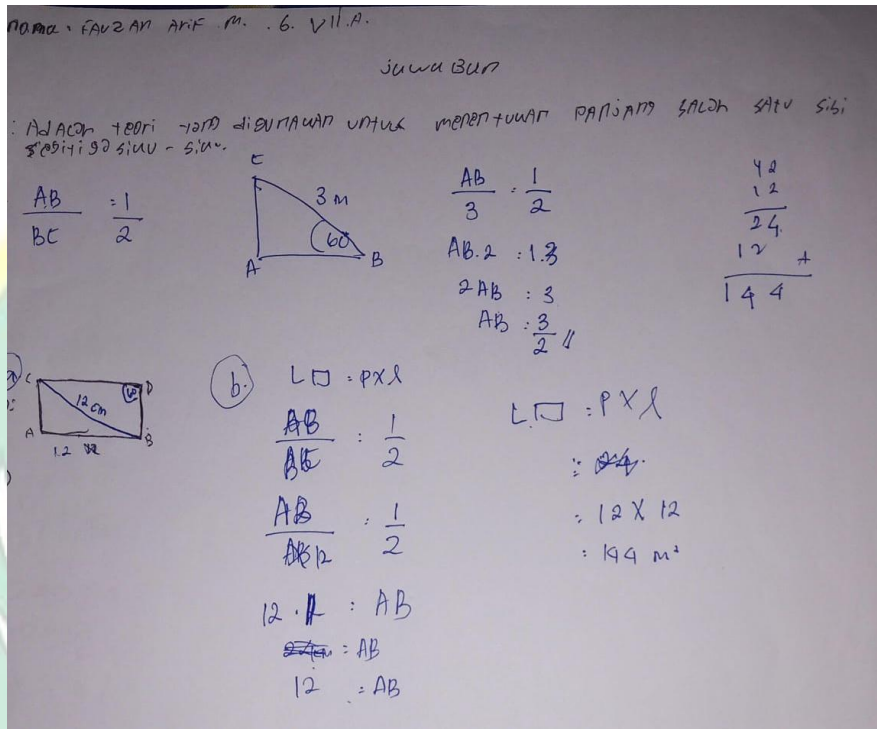 nama : FAUZAN Arif . M. . 6. VII.A.
jawaban
: Adalah teori yang digunakan untuk menentukan panjang salah satu sisi
segitiga siku - siku.
AB/BC : 1/2
C
3 m
60
A B
AB/3 : 1/2
AB.2 : 1.3
2AB : 3
AB : 3/2 //
12
24
12 +
144
C D
12 cm
A B
12
b.
L▭ : P X l
AB/BC : 1/2
AB/12 : 1/2
: AB
: AB
12 : AB
L▭ : P X l
: 12 X 12
: 144 m²